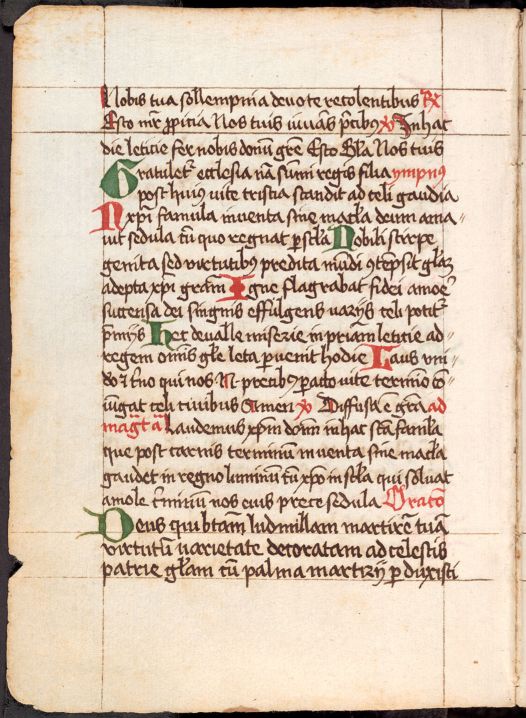 Nobis tua sollempnia devote recolentibus Rx
Esto nr̄ ꝓpicia Nos tuis iuvās p̄cibꝯ V̄ In hac
die leticie fer nobis donū grē Esto Bt̄a Nos tuis
Gratulet᷑ ecclesia nā sūmi regis filia ympnꝯ
post huiꝯ vite tristia scandit ad celi gaudia
N xp̄i famula inventa sine mac̄la deum ama-
vit sedula cū quo regnat ꝑ sc̄la Nobili stirpe
genita sed virtutibꝯ predita mūdi ꝯtēpsit gl̄az
adepta xp̄i grām Igne flagrabat fidei amoē
succensa dei singnis effulgens varijs celi potit᷑
p̄mijs Hec de valle miserie in priam leticie ad-
regem om̄is gl̄e leta pervenit hodie Laus uni-
do et t'no qui nos N precibꝯ ꝑacto vite termio cō-
iūgat celi civibus Amen V̄ Diffusa ē grā ad
mag̃t ā Laudemus xp̄m dom̄ in hac sc̄m famīla
que post carnis terminum inventa sine mac̄la
gaudet in regno luminum cū xp̄o in sc̄la qui solvat
a mole c'minū nos eius prece sedula Oratō
Deus qui btām ludmillam martirē tuā
virtutum varietate decoratam ad celestis
patrie gl̄am cū palma martirij ꝑduxisti